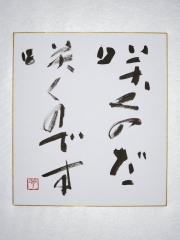 咲くのだ
咲くのです